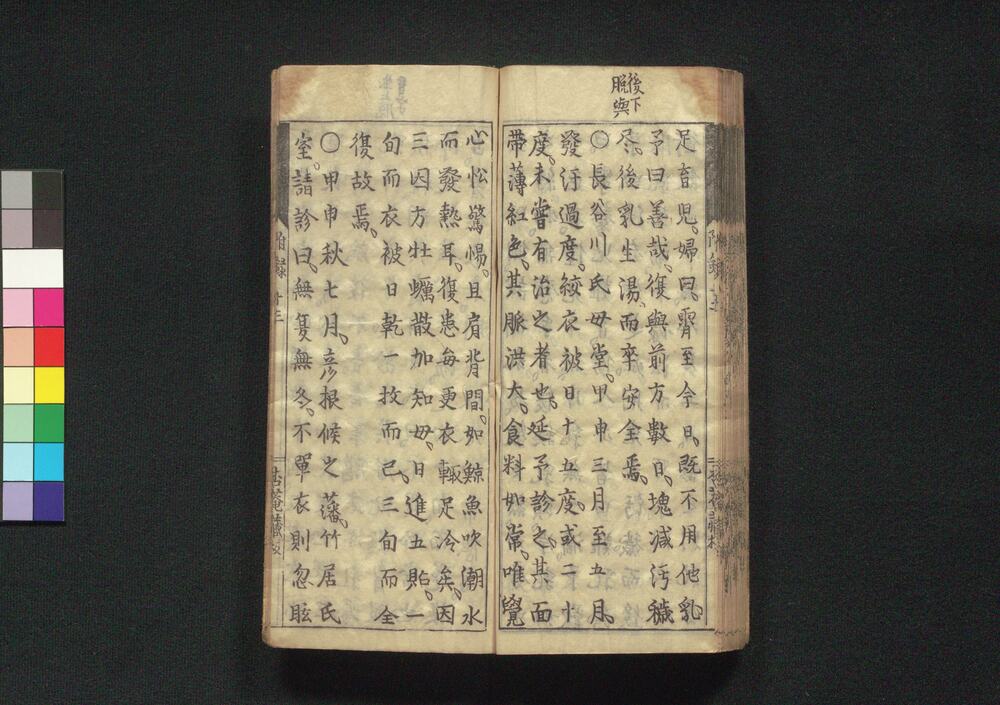 後下
脱與
足畜児。婦曰。霄至今日。既不用他乳。
予曰善哉。復與前方數日。塊減汚穢
尽。後乳坐湯。而卒安全焉。
〇長谷川氏母堂。甲申三月至五月。
發汗過度。絞衣被日十五度。或二十
度。未嘗有治之者也。延予診之。其面
帶薄紅色。其脈洪大。食料如常。唯覺
心忪驚惕。且肩背間。如鯨魚吹潮水
而發熱耳。復患每更衣輙足冷矣。因
三因方牡蠣散加知母。日進五貼。一
旬而衣被日乾一
而已。三旬而全
復故焉。
〇甲申秋七月。彦根候之藩。竹居氏
室。請診曰。無夏無冬。不單衣則忽眩
附錄
十三